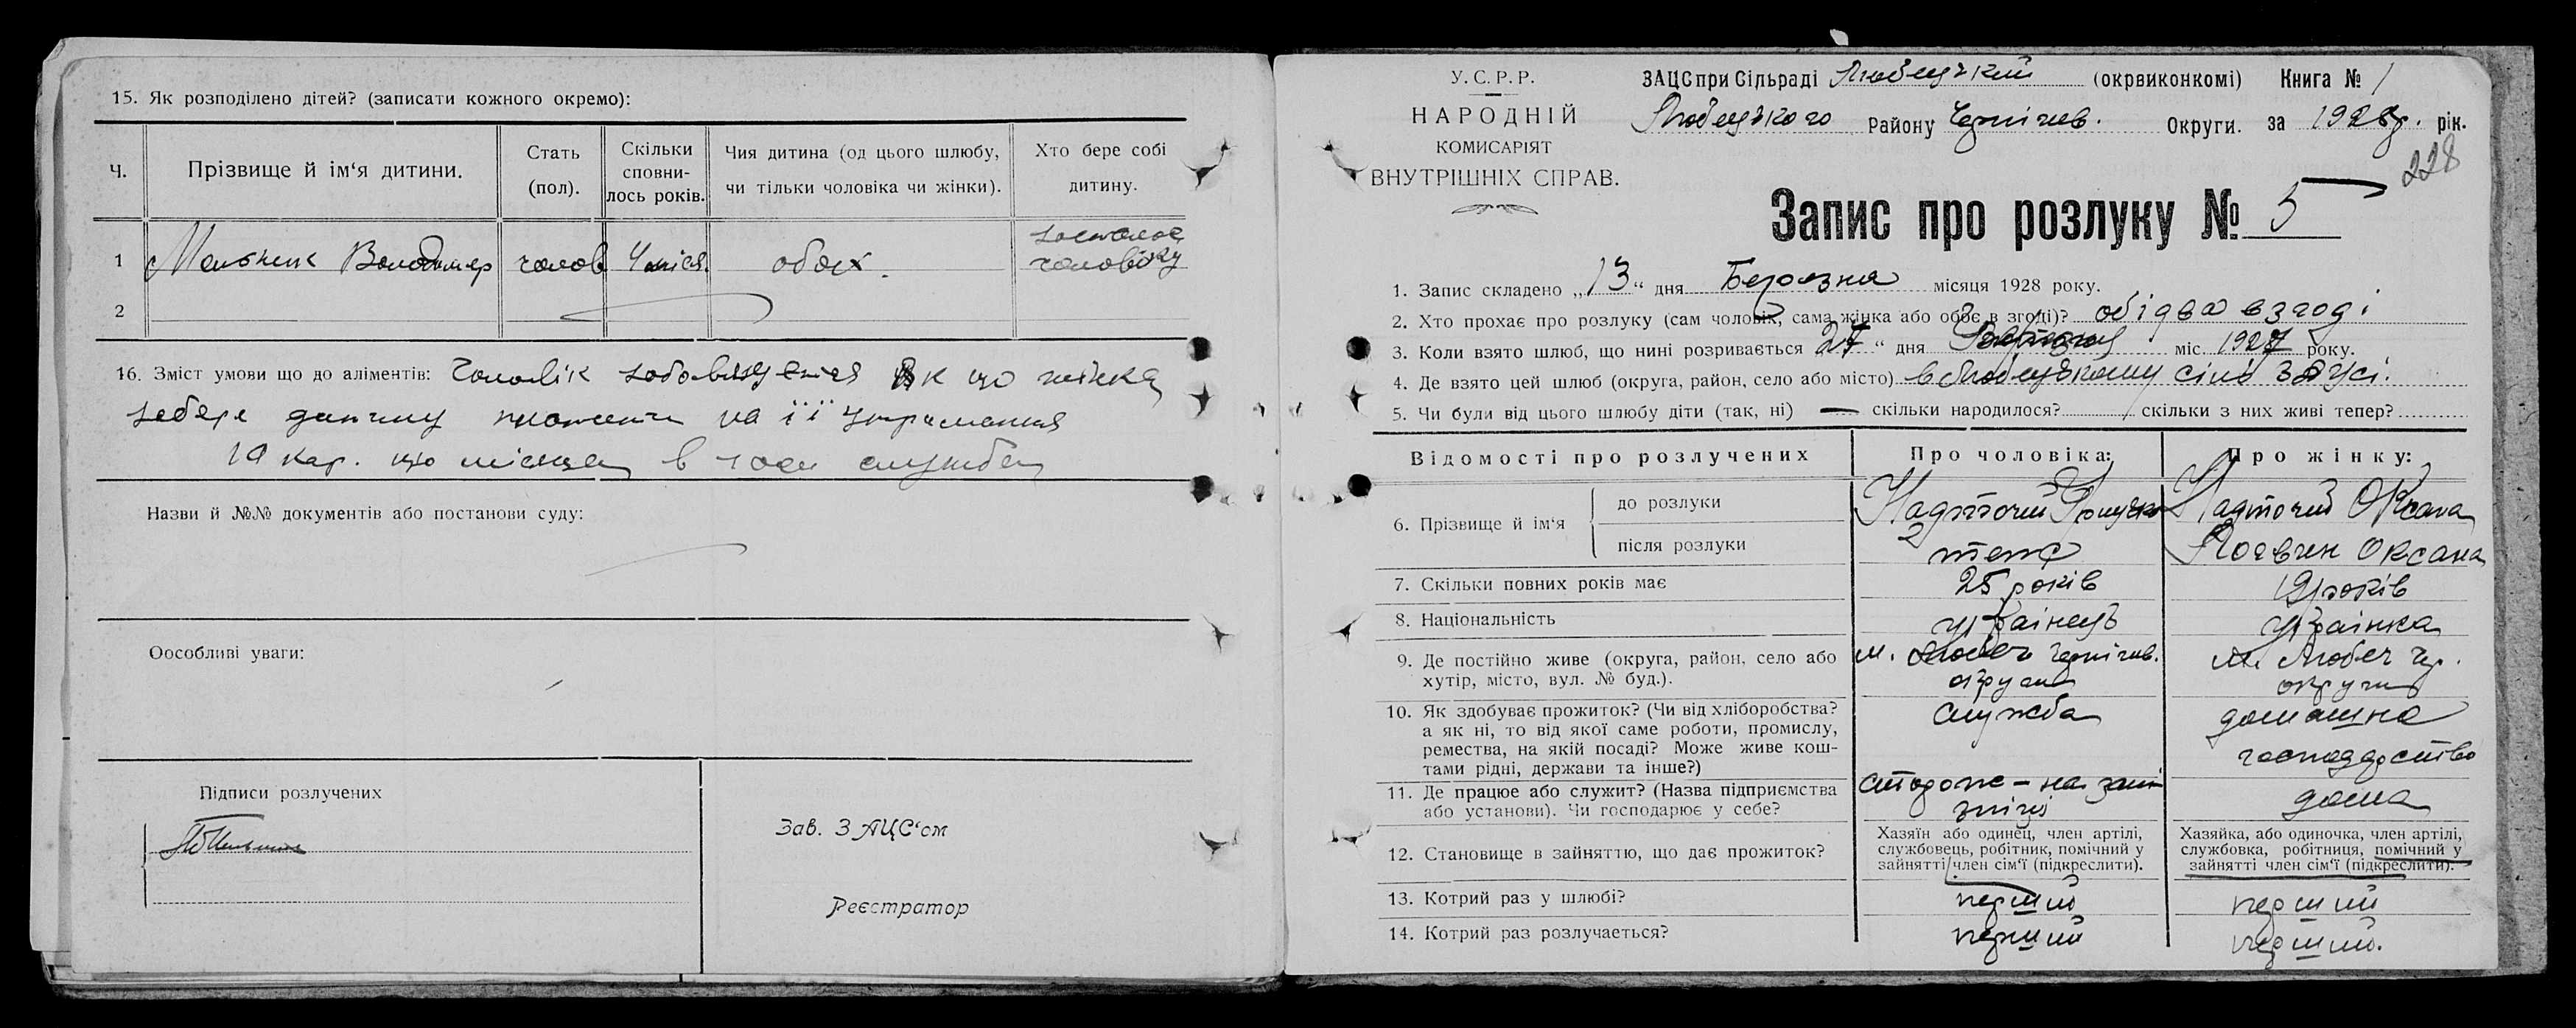 15. Як розподілено дітей? (записати кожного окремо):
Ч.
Прізвище й ім'я дитини.
Стать (пол).
Скільки сповни-лось років.
Чия дитина (од цього шлюбу, чи тільки чоловіка чи жінки).
Хто бере собі дитину.
1 Мельник Володимер чолов 4 міся. обох. чоловіку
2
16. Зміст умови що до аліментів: Чоловік як що жінка
забере дитину на її утримання
10 кар. що місяця в часи служби
Назви й №№ документів або постанови суду:
Оособливі уваги:
Підписи розлучених
Зав. ЗАЦС'ом
Реєстратор
У. С. Р. Р.
НАРОДНІЙ
КОМИСАРІЯТ
ВНУТРІШНІХ СПРАВ.
ЗАЦС при Сільраді Любецький (окрвиконкомі) Книга № 1
Любецького Району Чернігив. Округи. за 1928р. рік.
228
Запис про розлуку № 5
1. Запис складено „13" дня Березня місяця 1928 року.
2. Хто прохає про розлуку (сам чоловік, сама жінка або обоє в згоді)? обідва в згоді
3. Коли взято шлюб, що нині розривається 27" дня міс 1927 року.
4. Де взято цей шлюб (округа, район, село або місто) в Любецькому
5. Чи були від цього шлюбу діти (так, ні) — скільки народилося? скільки з них живі тепер?
Відомості про розлучених
Про чоловіка:
Про жінку:
6. Прізвище й ім'я
до розлуки
Надточий
Надточий Оксана
після розлуки
теж
Оксана
7. Скільки повних років має
25 років
19 років
8. Національність
українець
українка
9. Де постійно живе (округа, район, село або
хутір, місто, вул. № буд.).
м. Любеч Чернігив.
округи
м. Любеч Чер.
округи
10. Як здобуває прожиток? (Чи від хліборобства?
а як ні, то від якої саме роботи, промислу,
ремества, на якій посаді? Може живе кош-
тами рідні, держави та інше?)
служба
домашнє
господдрство
11. Де працює або служит? (Назва підприємства
або установи). Чи господарює у себе?
сторож – на
дома
12. Становище в зайняттю, що дає прожиток?
Хазяїн або одинец, член артілі,
службовець, робітник, помічний у
зайнятті член сім'ї (підкреслити).
Хазяйка, або одиночка, член артілі,
службовка, робітниця, помічний у
зайнятті член сім'ї (підкреслити).
13. Котрий раз у шлюбі?
перший
перший
14. Котрий раз розлучається?
перший
перший.